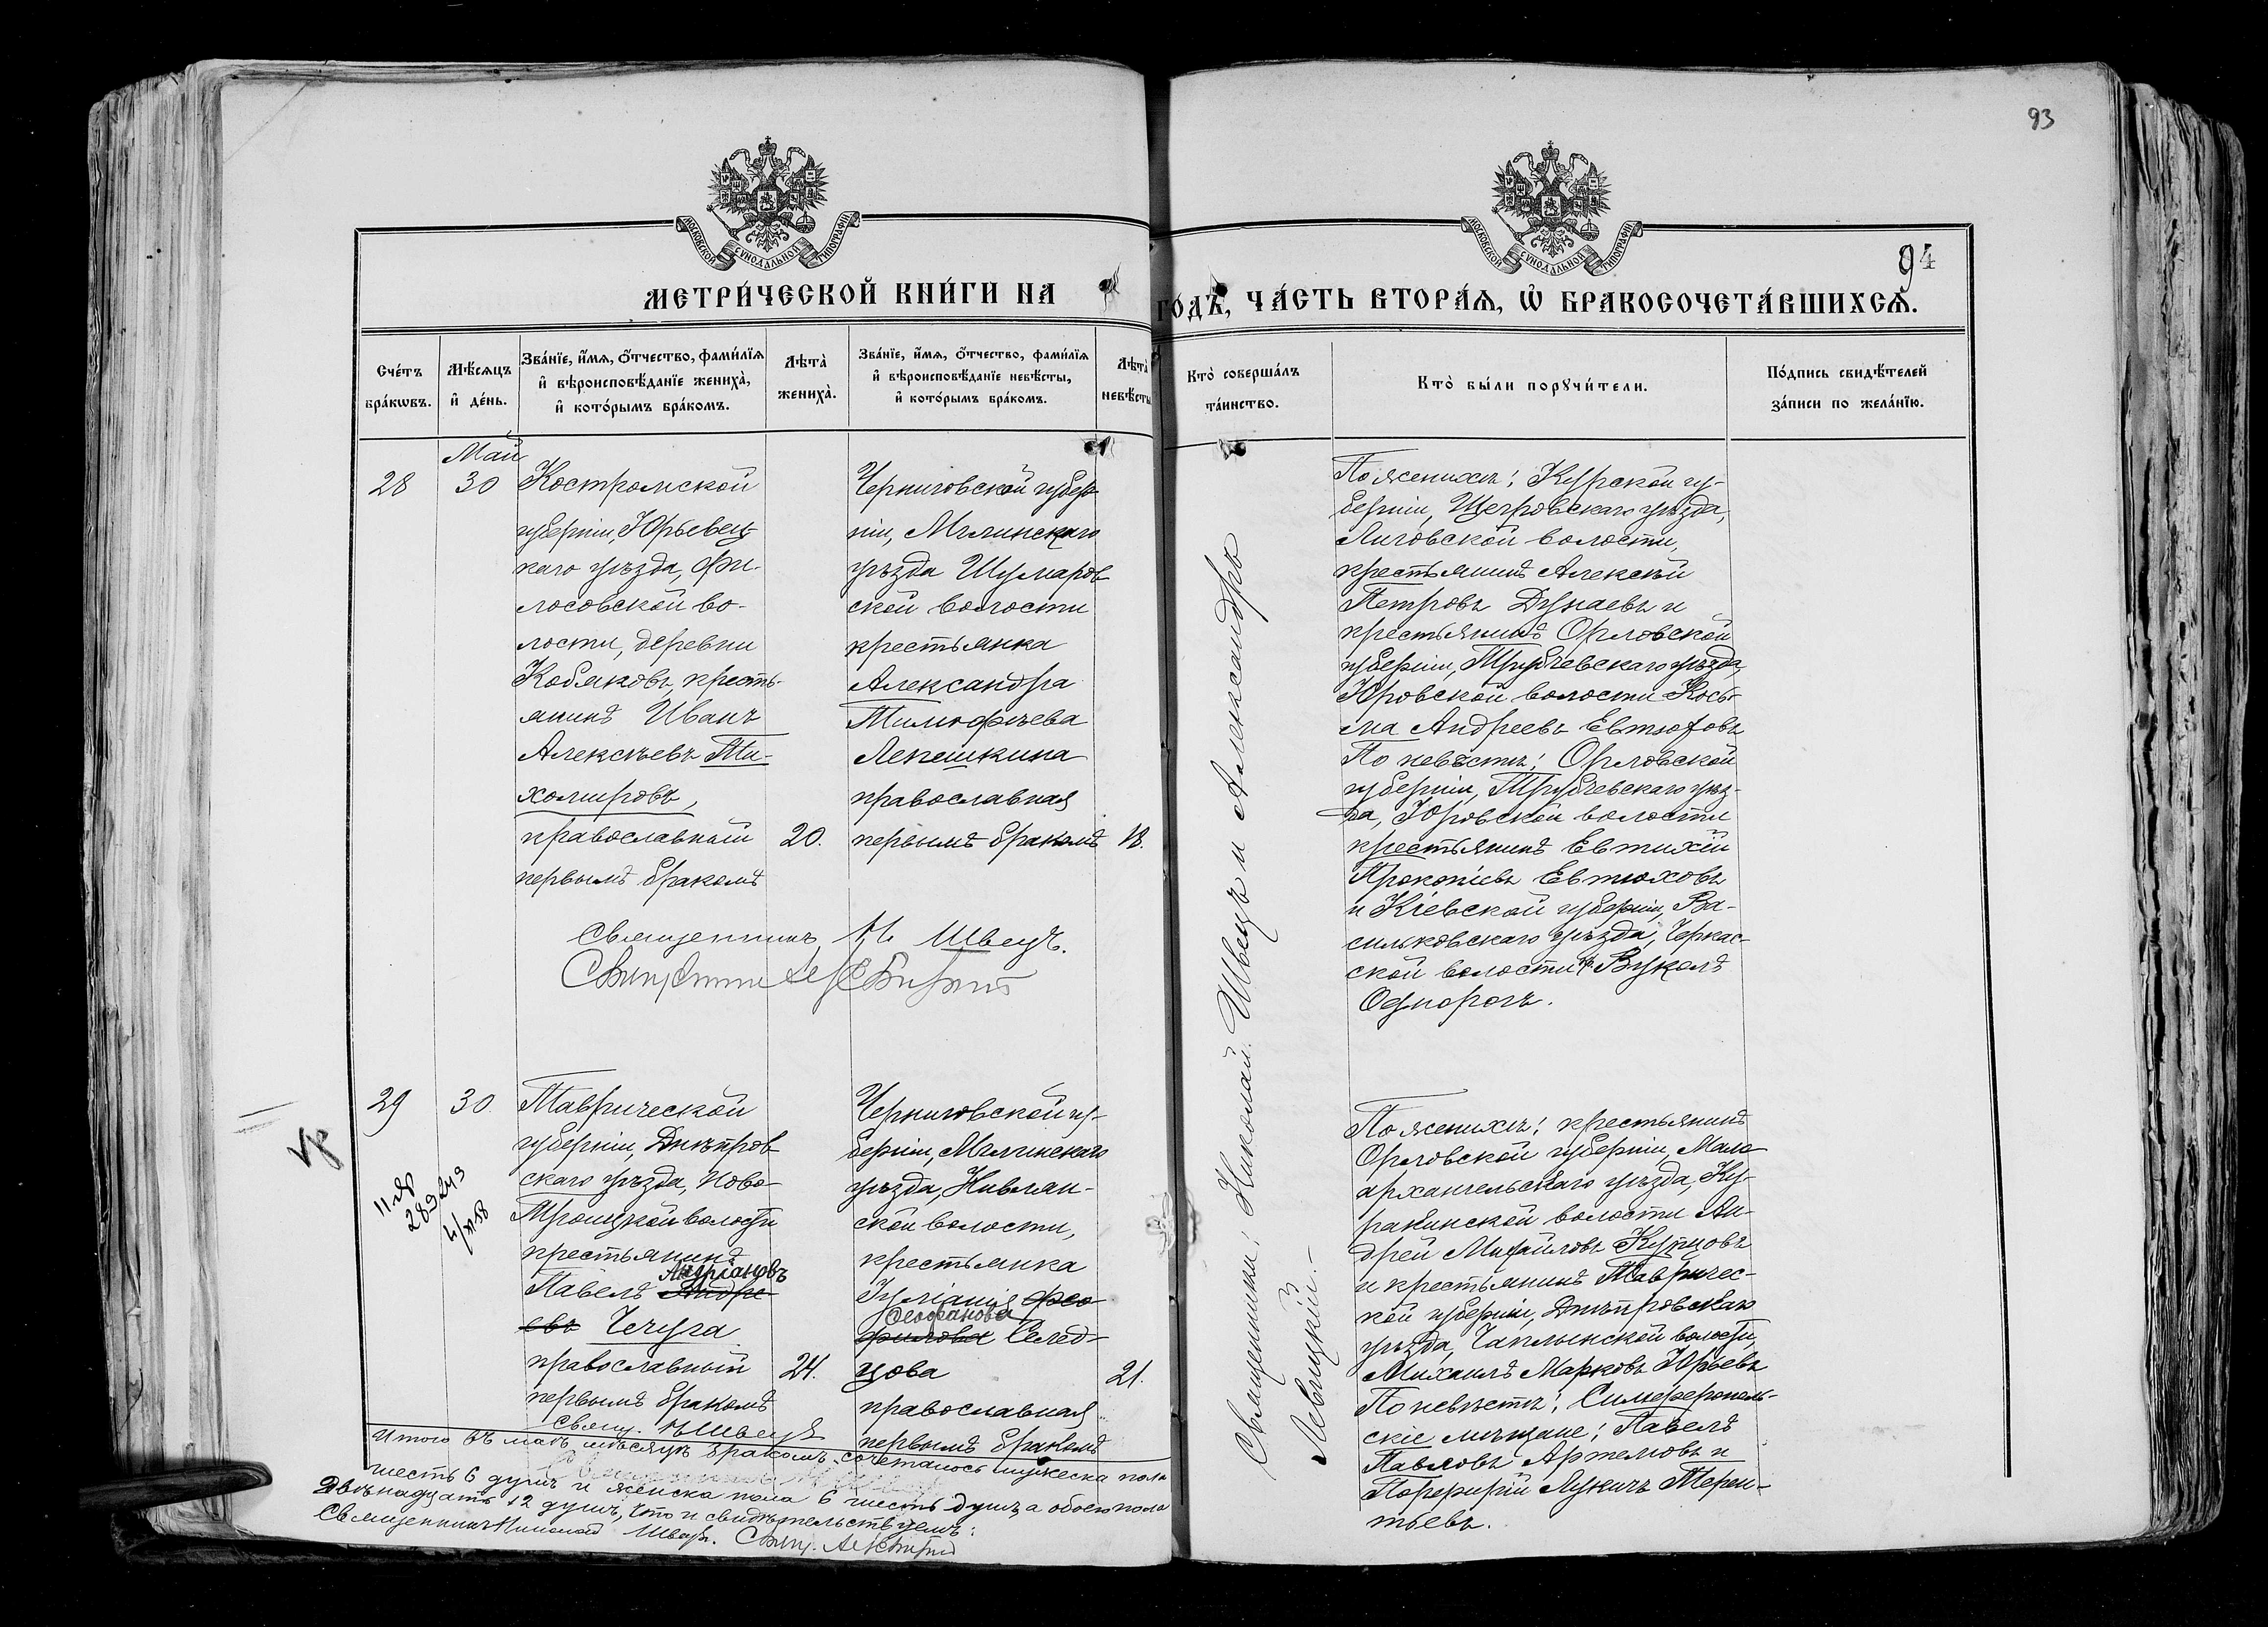 93
МОСКОВСКОЙ СУНОДАЛЬНОЙ ТИПОГРАФІИ
МОСКОВСКОЙ СУНОДАЛЬНОЙ ТИПОГРАФІИ
94
МЕТРИ́ЧЕСКОЙ КНИ́ГИ НА
ГО́ДЪ, ЧА́СТЬ ВТОРА́Я, Ѡ҆ БРАКОСОЧЕТА́ВШИХСЯ.
Сче́тъ бра́кωвъ.
Мѣ́сяцъ и҆ де́нь.
Зва́нїе, и҆́мя, ѻ҆́тчество, фами́лїя и҆ вѣроисповѣ́данїе жениха̀, и҆ кото́рымъ бра́комъ.
Лѣта̀ жениха̀.
Зва́нїе, и҆́мя, ѻ҆́тчество, фами́лїя и҆ вѣроисповѣ́данїе невѣ́сты, и҆ кото́рымъ бра́комъ.
Лѣта̀ невѣ́сты
Кто̀ соверша́лъ та́инство.
Кто̀ бы́ли порꙋчи́тели.
По́дпись свидѣ́телей за́писи по жела́нїю.
Май
28
30
Костромской
губерніи, Юрьевец
каго уѣзда, Фи-
лосовской во-
лости, деревни
Кобяковъ, кресть-
янинъ Иванъ
Алексѣевъ Ти-
хомировъ,
православный
первымъ бракомъ
20.
Черниговской губер
ніи, Мглинскаго
уѣзда Шумаров
ской волости
крестьянка
Александра
Тимофѣева
Лепешкина
православная
первымъ бракомъ
18.
Священникъ Н. Швецъ.
Священники: Николай Швецъ и Александръ
Левицкій.-
По женихѣ: Курской гу-
берніи, Щегровскаго уѣзда,
Лиговской волости,
крестьянинъ Алексѣй
Петровъ Дунаевъ и
крестьянинъ Орловской
губерніи, Трубчевскаго уѣзда,
Юровской волости Косьма
Андреевъ Евтюховъ
По невѣстѣ: Орловской
губерніи, Трубчевскаго уѣз-
да, Юровской волости
крестьянинъ Евтихій
Прокопіевъ Евтюховъ
и Кіевской губерніи, Ва-
сильковскаго уѣзда, Черкас-
ской волости кр. Вуколъ
Однорогъ.
29
30.
Таврической
губерніи, Днѣпров
скаго уѣзда, Ново-
Троицкой волости
крестьянинъ
Андріановъ
Павелъ Андре-
евъ Чечуга
православный
первымъ бракомъ
24.
Черниговской гу-
берніи, Мглинскаго
уѣзда, Нивлян-
ской волости,
крестьянка
Іуліанія Фео
Феофанова
филова Селед-
цова
православная
первымъ бракомъ
21.
По женихѣ: крестьянинъ
Орловской губерніи, Мало
архангельскаго уѣзда, Ку-
ракинской волости Ан-
дрей Михайловъ Купцовъ
и крестьянинъ Тавричес-
кой губерніи, Днѣпровскаго
уѣзда, Чаплынской волости,
Михаилъ Марковъ Юрьевъ
По невѣстѣ: Симферополь-
скіе мѣщане: Павелъ
Павловъ Артемовъ и
Порфирій Лукичъ Терен-
тьевъ.
Свящ. Н. Швецъ
Итого въ маѣ мѣсяцѣ бракомъ сочеталось мужеска пола
шесть 6 душъ и женска пола 6 шесть душъ, а обоего пола
Двѣнадцать 12 душъ, что и свидѣтельствуемъ:
Священникъ Николай Швецъ.